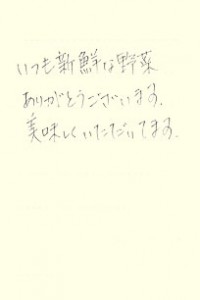 いつも新鮮な野菜
ありがとうございます。
美味しくいただいてます。